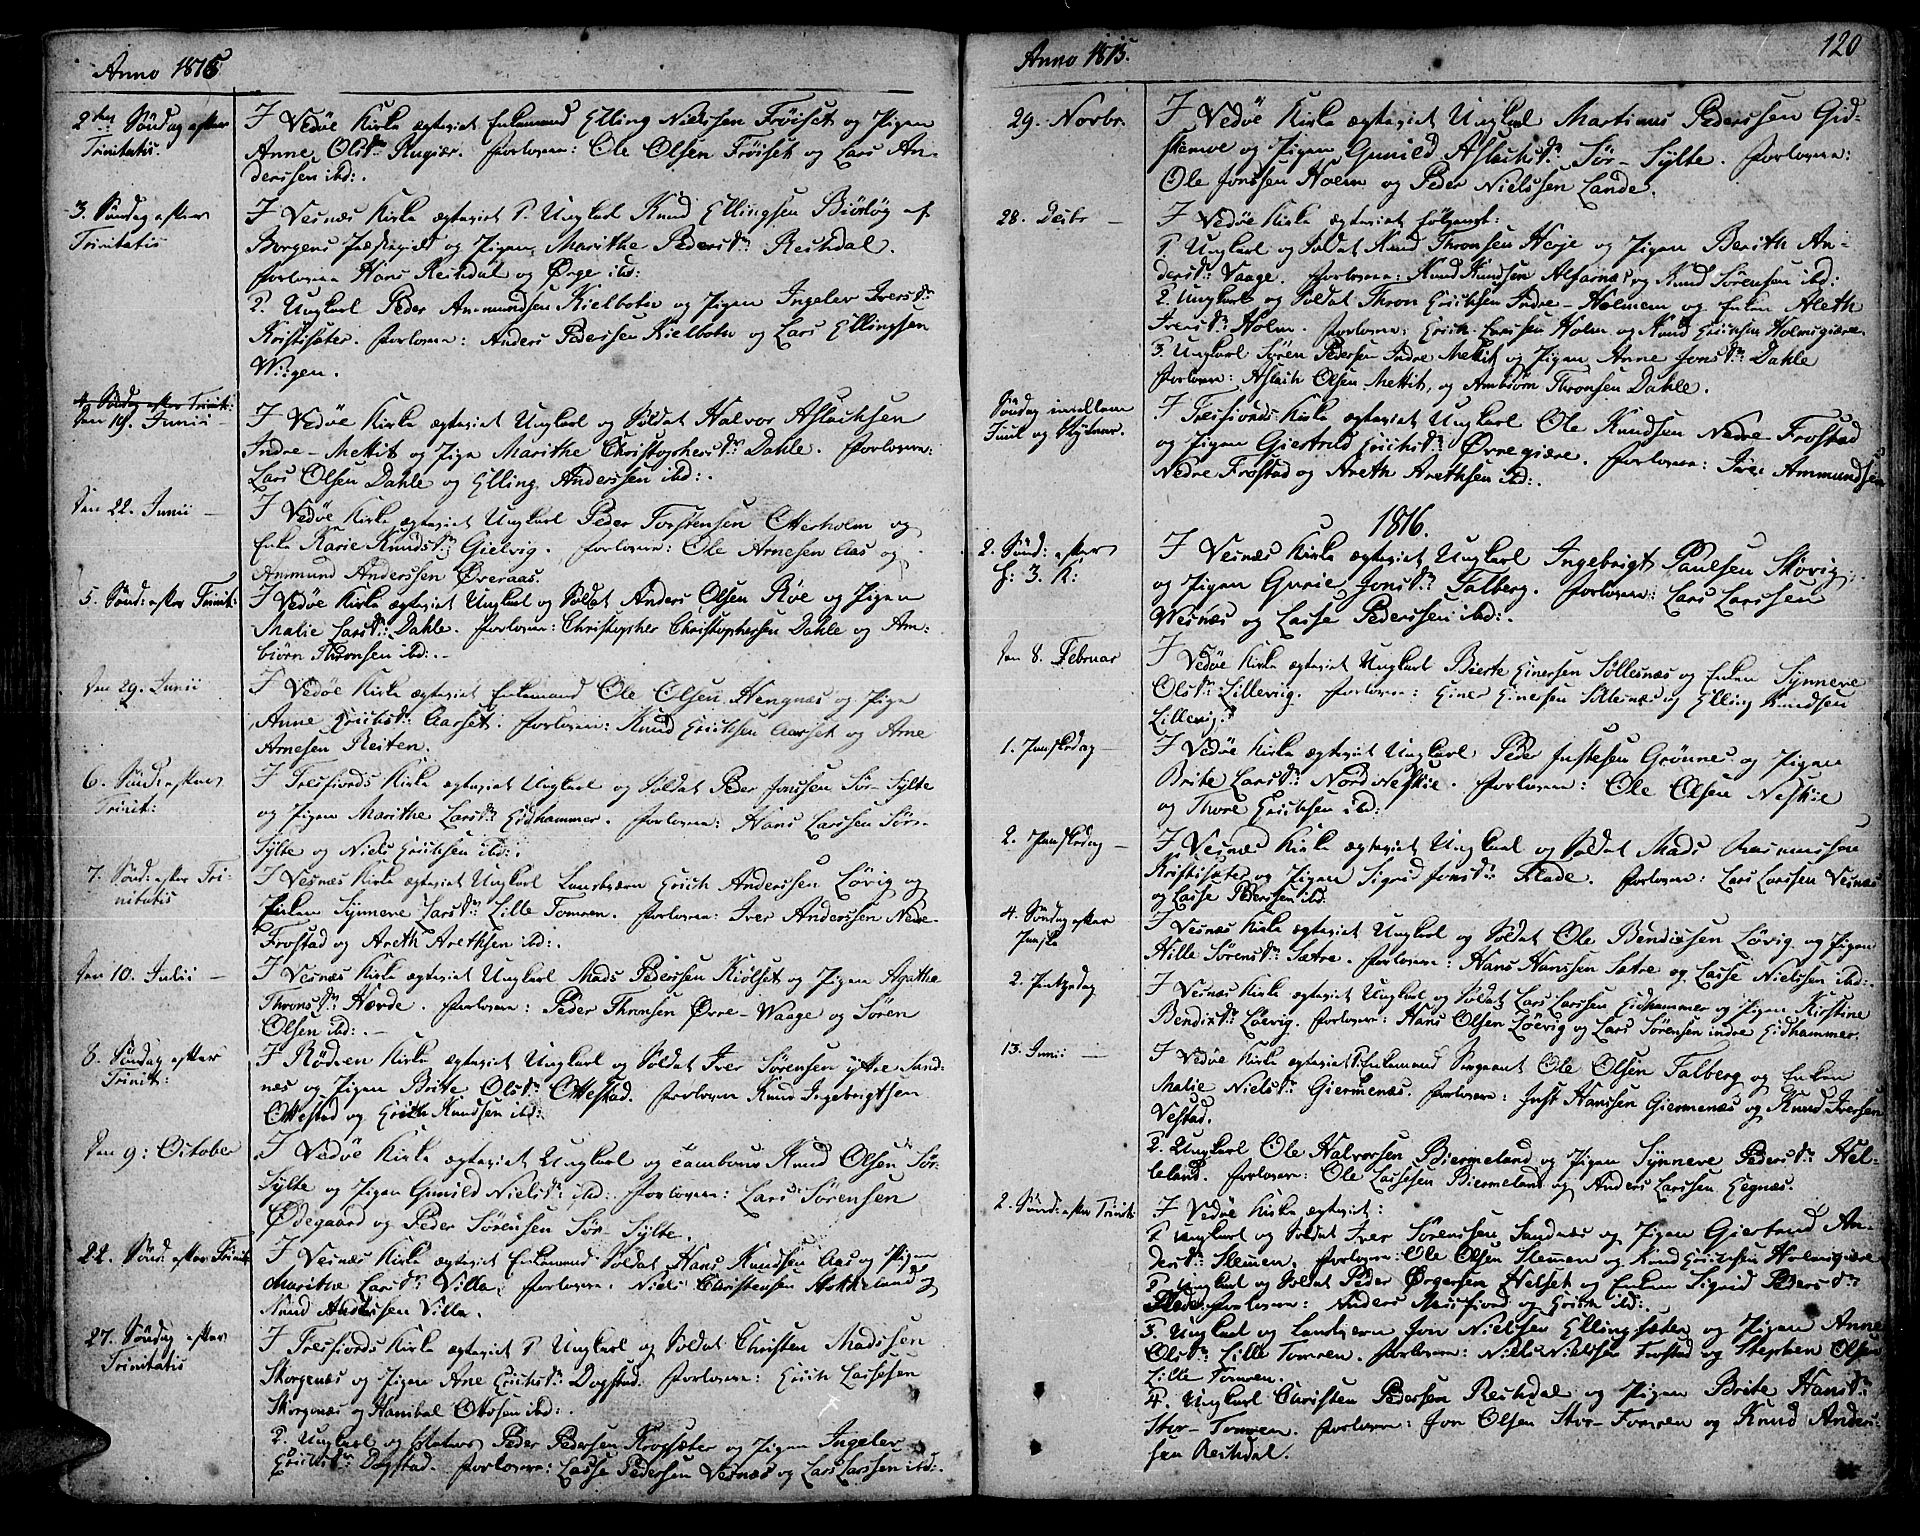 Anno 1815
2den Søndag efter
Trinitatis.
I Vedøe Kirke egteviet Enkemand Elling Nielssen Frøiset og Pigen
Anne Olsdr. Rugiær. Forlovere: Ole Olsen Frøiset og Lars An-
derssen ibd:.
3. Søndag efter
Trinitatis
I Vesnæs Kirke egteviet 1. Ungkarl Knud Ellingsen Biørløg af
Borgens Præstegield og Pigen Marithe Pedersdr. Reistdal.
Forlovere Hans Reistdal og Ørge ibd:
2. Ungkarl Peder Ammundsen Kielbotn og Pigen Ingelev Iversdr:
Kristisæter. Forlovere: Anders Pederssen Kielbotn og Lars Ellingsen
Wiigen.
4. Søndag efter Trinit:
Den 19. Junii -
I Vedøe Kirke egteviet Ungkarl og Soldat Halvor Aslacksen
Indre-Mettit og Pige Marithe Christophersdr. Dahle. Forlovere:
Lars Olsen Dahle og Elling Anderssen ibd:.
Den 22. Junii -
I Vedøe Kirke egteviet Ungkarl Peder Torstensen Otterholm og
Enke Marie Knudsdr: Gielvig. Forlovere: Ole Arnesen Aas og
Ammund Anderssen Øveraas.
5. Sønd: efter Trinit:
I Vedøe Kirke egteviet Ungkarl og Soldat Anders Olsen Røe og Pigen
Malie Larsdr: Dahle. Forlovere: Christopher Christophersen Dahle og Am-
biørn Thronsen ibd:. -
Den 29. Junii
I Vedøe Kirke egteviet Enkemand Ole Olsen Hengnæs og Pige
Anne Erichsdr: Aarset. Forlovere: Knud Erichsen Aarset og Arne
Arnesen Reiten.
6. Sønd: efter
Trinit:
I Tresfiords Kirke egteviet Ungkarl og Soldat Peder Jonssen Sør-Sylte
og Pigen Marithe Larsdr: Eidhammer. Forlovere: Hans Larssen Sør-
Sylte og Niels Erichsen ibd:.
7. Sønd: efter Tri-
nitatis
I Vesnæs Kirke egteviet Ungkarl Landværn Erich Anderssen Løvig og
Enken Synneve Larsdr: Lille Tomren. Forlovere: Iver Anderssen Nedre-
Frostad og Areth Arethsen ibd:.
Den 10. Julii -
I Vesnæs Kirke egteviet Ungkarl Mads Pederssen Kiølset og Pigen Agathe
Thronsdr: Hærde. Forlovere: Peder Thronsen Øvre-Waage og Søren
Olsen ibd:. -
8. Søndag efter
Trinit:
I Rødven Kirke egteviet Ungkarl og Soldat Iver Sørensen ytre Sand-
nes og Pigen Brite Olsdr: Ottestad. Forlovere Knud Ingebrigtsen
Ottestad og Erich Knudsen ibd:
Den 9: October
I Vedøe Kirke egteviet Ungkarl og Tambour Knud Olsen Sør-
Sylte og Pigen Gunild Nielsdr: ibd: Forlovere: Lars Sørensen
Ødegaard og Peder Sørensen Sør-Sylte.
22. Sønd: efter Trinit:
I Vesnæs Kirke egteviet Enkemand Soldat Hans Knudsen Aas og Pigen
Marithe Larsdr: Villa. Forlovere. Niels Christensen og
Knud Anderssen Villa.
27. Søndag efter
Trinitatis
I Tresfiords Kirke egteviet 1. Ungkarl og Soldat Christen Madssen
Skorgenæs og Pigen Ane Erichsdr: Dogstad. Forlovere: Erich Lassesen
Skorgenæs og Hanibal Ottosen ibd:.
2. Ungkarl og Peder Pedersen Krogsæter og Pigen Ingelev
Erichsdr: Dogstad. Forlovere: Lasse Pedersen Vesnæs og Lars Larssen ibd:.
Anno 1815.
120
29. Novbr.
I Vedøe Kirke egteviet Ungkarl Martinus Pederssen Gid-
skemoe og Pigen Gunild Aslachsdr: Sør-Sylte. Forlovere:
Ole Jonssen Holm og Peder Nielssen Lande.
28. Decbr -
I Vedøe Kirke egteviet følgende:
1. Ungkarl og Soldat Knud Thronsen Heje og Pigen Berith An-
dersdr: Vaage. Forlovere: Knud Knudsen Alfarnæs og Knud Sørensen ibd:
2. Ungkarl og Soldat Thron Erichsen Indre-Holmem og Enken Aleth
Iversdr: Holm. Forlovere: Erich Iverssen Holm og Knud Erichsen Holmsgiære
3. Ungkarl Søren Pedersen Indre Mettit og Pigen Anne Jonsdr: Dahle
Forlovere: Aslach Olsen Mettit, og Ambiørn Thronsen Dahle.
Søndag imellem
Juul og Nytaar.
I Tresfiords Kirke egteviet Ungkarl Ole Knudsen Nedre-Frostad
og Pigen Giertrud Erichsdr: Øvregiære. Forlovere: Iver Ammundsen
Nedre Frostad og Areth Arethsen ibd:.
1816.
2. Sønd: efter
H: 3. K:
I Vesnæs Kirke egteviet Ungkarl Ingebrigt Paulsen Skovig
og Pigen Gurie Jonsdr: Talberg. Forlovere: Lars Larssen
Wesnæs og Lasse Pederssen ibd:.
Den 8. Februar
I Vedøe Kirke egteviet Ungkarl Bierte Einersen Søllesnæs og Enken Synneve
Olsdr: Lillevig. Forlovere: Einer Einersen Søllesnæs og Elling Knudsen
Lillevig.
1. Paaskedag -
I Vedøe Kirke egteviet Ungkarl Peder Justesen Grønne og Pigen
Brite Larsdr: Nord Neskie. Forlovere: Ole Olsen Neskie
og Thore Erichsen ibd:
2. Paaskedag -
I Vesnæs Kirke egteviet Ungkarl og Soldat Mads Rasmussen
Kristisæter og Pigen Sigrid Jonsdr: Flade. Forlovere: Lars Larssen Vesnæs
og Lasse Pederssen ibd.
4. Søndag efter
Paaske
I Vesnæs Kirke egteviet Ungkarl og Soldat Ole Bendixsen Løvig og Pigen
Hille Sørensdr: Sætre. Forlovere: Hans Hanssen Sætre og Lasse Nielssen ibd:.
2. Pintsedag
I Vesnæs Kirke egteviet Ungkarl og Soldat Lars Larssen Eidhammer og Pigen Kirstine
Bendixdr: Løevig. Forlovere: Hans Olsen Løevig og Lars Sørensen indre Eidhammer.
13. Junii -
I Vedøe Kirke egteviet 1. Enkemand Sergeant Ole Olsen Talberg og Enken
Malie Nielsdr: Giermenæs. Forlovere: Just Hanssen Giermenæs og Knud Iversen
Vestad.
2. Ungkarl Ole Halvorsen Biermeland og Pigen Synneve Pedersdr: Hel-
leland. Forlovere: Ole Lassesen Biermeland og Anders Larssen Hegnæs.
2. Sønd: efter Trinit:
I Vedøe Kirke egteviet:
1. Ungkarl og Soldat Iver Sørenssen Sandnæs og Pigen Giertrud An-
dersdr: Slemen. Forlovere: Ole Olsen Slemen og Knud Erichsen Holmsgiære
2. Ungkarl og Soldat Peder Ørgersen Helset og Enken Sigrid Pedersdr:
Flade. Forlovere: Anders og Erich ibd:.
3. Ungkarl og Landværn Jon Nielsen Ellingsæter og Pigen Anne
Olsdr: Lille Tomren. Forlovere: Niels Nielssen Frostad og Stephen Olsen
Lille Tomren.
4. Ungkarl Christen Pedersen Reistdal og Pigen Brite Hansdr:
Stor-Tomren. Forlovere: Jon Olsen Stor-Tomren og Knud Anders-
sen Reistdal.